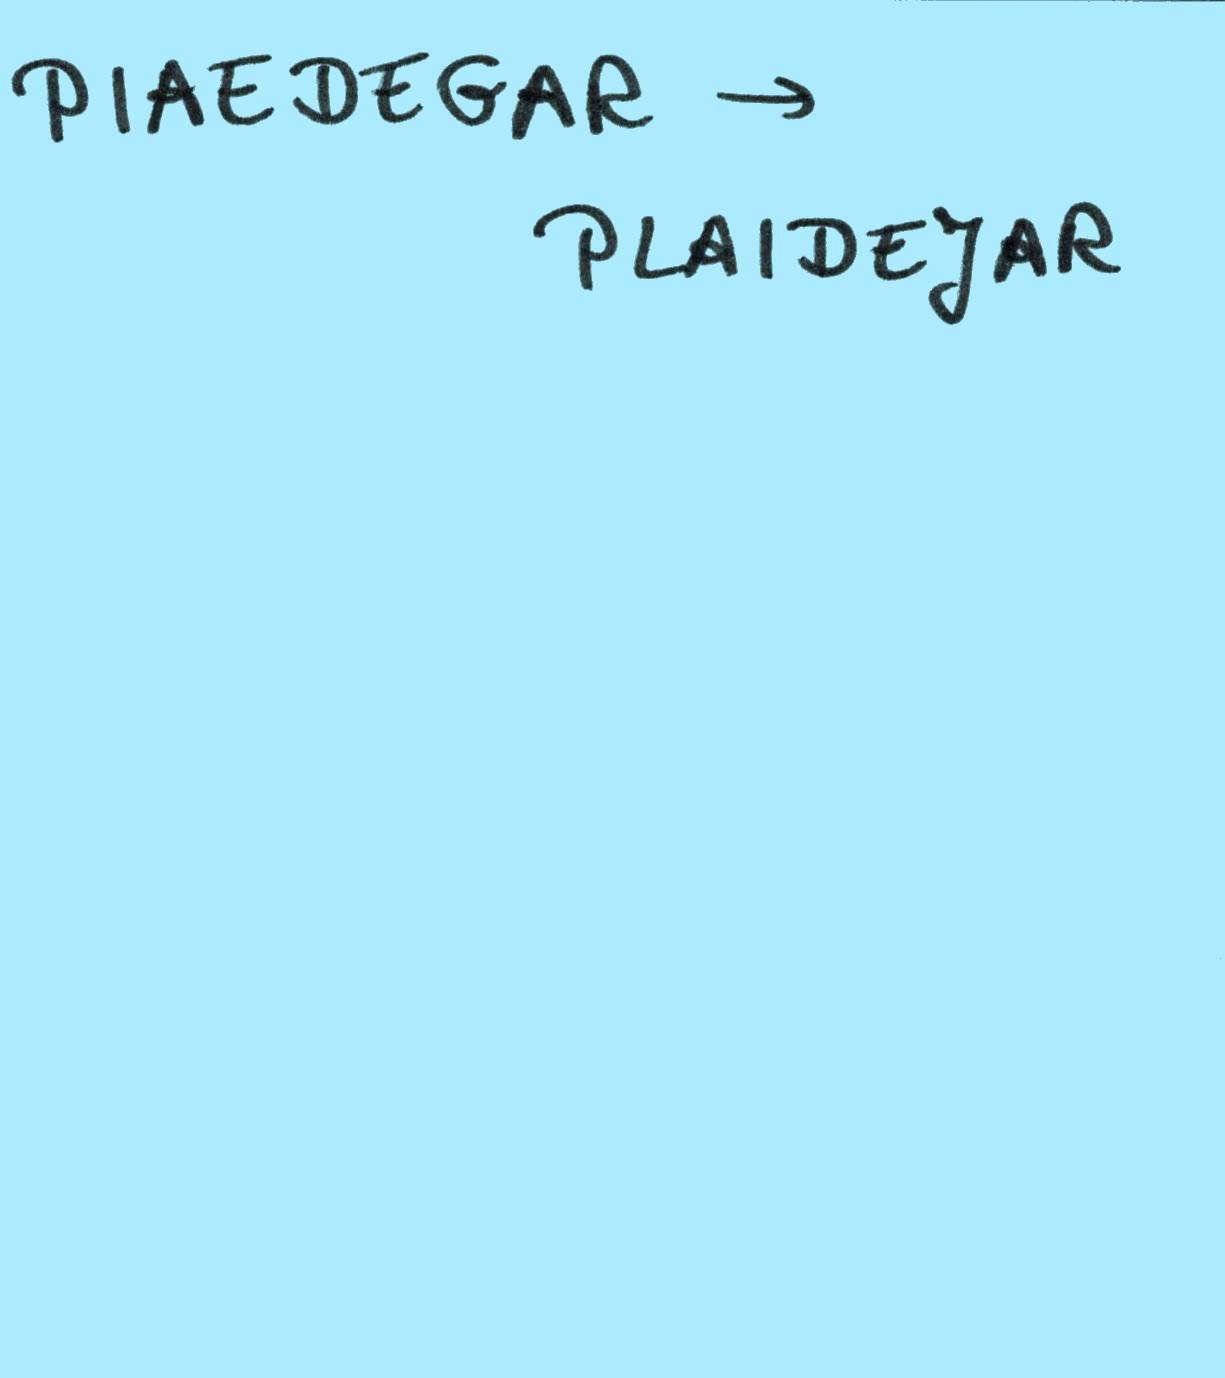 PIAEDEGAR →
PLAIDEJAR